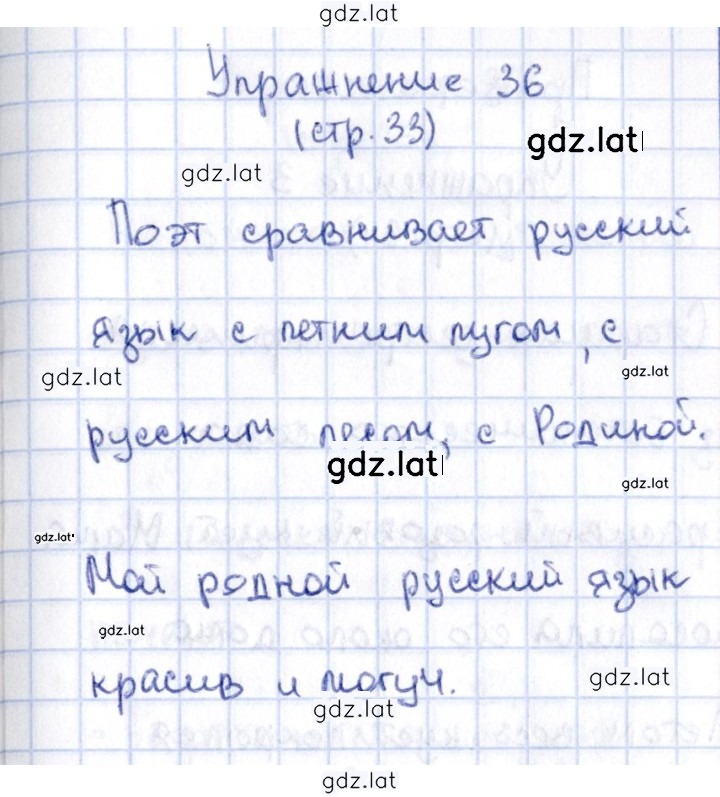 gdz.lat
Упражнение 36
(стр. 33)
gdz.lat
gdz.lat
Поэт сравнивает русский
язык с летним лугом, с
gdz.lat
gdz.lat
русским лесом, с Родиной.
gdz.lat
gdz.lat
gdz.lat
Мой родной русский язык
gdz.lat
красив и могуч.
gdz.lat
gdz.lat
gdz.lat